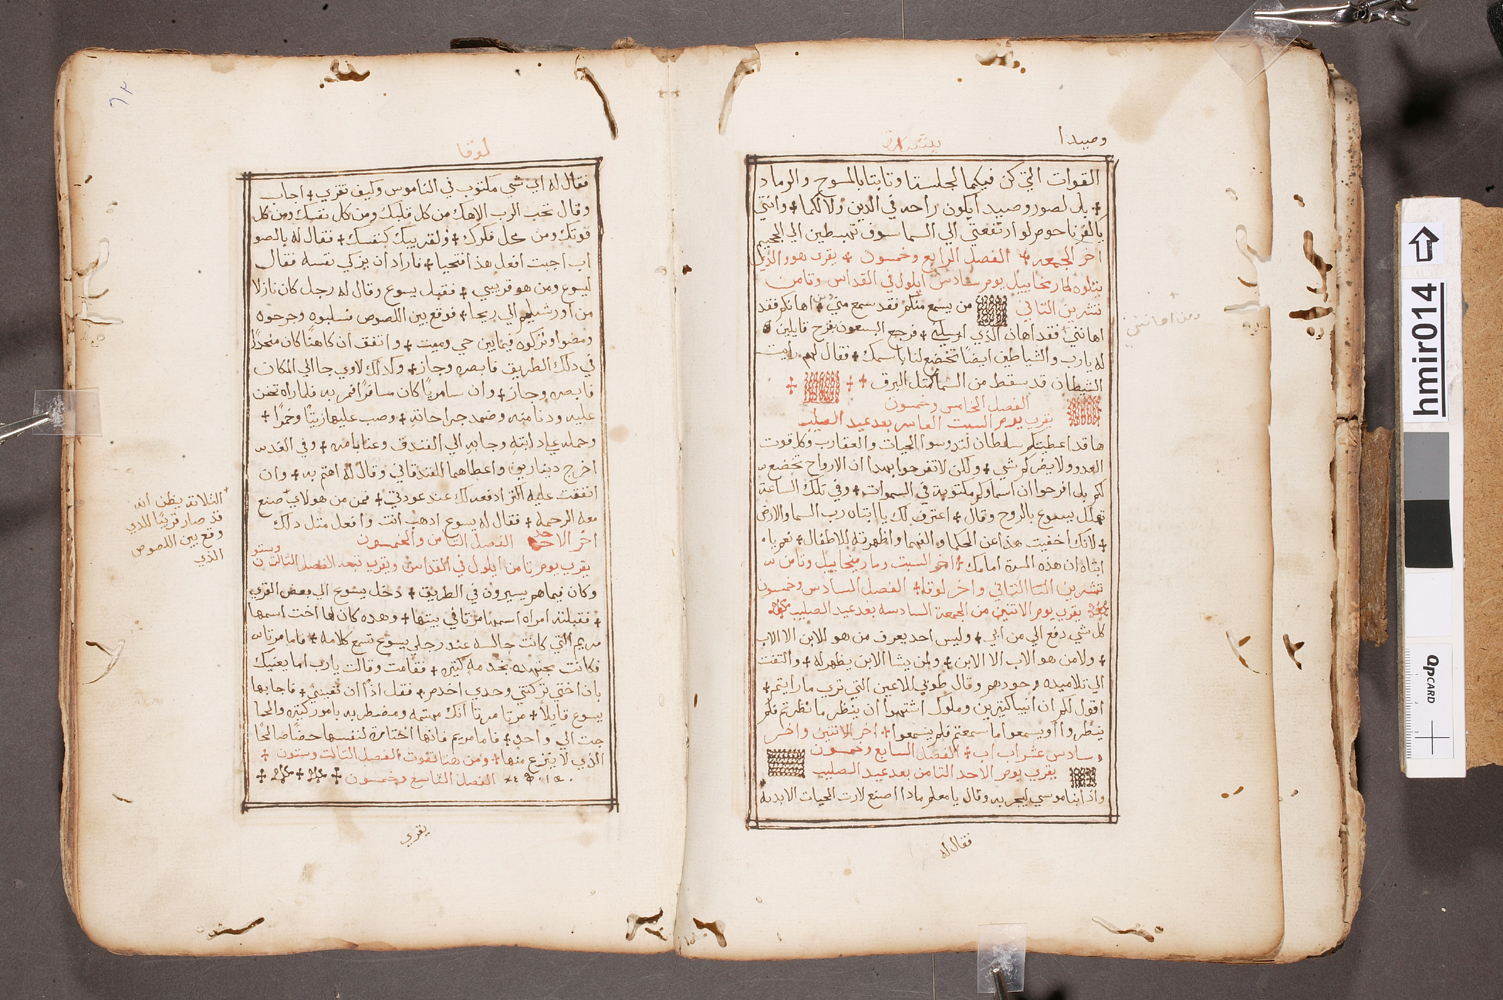 وصيدا
القوات التي كن فيكما لجلستا وتابتا بالمسوح والرماد
بل لصور وصيدا يكون راحه في الدين ولا لكما وانتي
يا كفرناحوم لو ارتفعتي الي السما سوف تهبطين الي الجحيم
اخر الجمعه الفصل الرابع وخمسون يقرب هوو الذي
يتلوه لمار مخاييل يوم سادس ايلول في القداس وثامن
تشرين الثاني من يسمع منكم فقد يسمع مني اهانكم فقد
اهانني فقد اهان الذي ارسلني فرجع السبعون بفرح قايلين
له يارب والشياطين ايضا تخضع لنا باسمك فقال لهم رايت
الشيطان قد سقط من السما مثل البرق
الفصل الخامس وخمسون
يقرب يوم السبت العاشر بعد عيد الصليب
ها قد اعطيتكم سلطان لتدوسوا الحيات والعقارب وكل قوت
العدو ولا يضركم شي ولكن لا تفرحوا بهذا ان الارواح تخضع
لكم بل افرحوا ان اسماوكم مكتوبه في السموات وفي تلك الساعة
تهلل يسوع بالروح وقال اعترف لك يا ابتاه رب السما والارض
لانك اخفيت هذا عن الحكما والفهما واظهرته للاطفال نعم يا
ابتاه ان هذه المسرة امامك اخر السبت ومار ميخاييل وثامن
تشرين الثاني واخر لوقا الفصل السادس وخمسون
يقرب يوم الاثنين من الجمعة السادسه بعد عيد الصليب
كل شي دفع الي من ابي وليس احد يعرف من هو الابن الا الاب
ولا من هو الاب الا الابن ولمن يشا الابن يظهر له والتفت
الي تلاميذه وحدهم وقال طوبي للاعين التي تري ما رايتم
اقول لكم ان انبيا كثيرين وملوك اشتهوا ان ينظر ما نظرتم فلم
ينظروا او يسمعوا ما سمعتم فلم يسمعوا اخر الاثنين واخر
سادس عشر اب اب الفصل السابع وخمسون
يقرب يوم الاحد الثامن بعد عيد الصليب
واذا بناموسي ليجربه وقال يا معلم ماذا اصنع لارث الحيات الابديه
فقال له
لوقا
فقال له اي شي مكتوب في الناموس وكيف تقري اجاب
وقال تحب الرب الاهك من كل قلبك ومن كل نفسك ومن كل
قوتك ومن كل فكرك ولقريبك كنفسك فقال له بالصو
اب اجبت افعل هذا فتحيا فاراد ان يزكي نفسه فقال
ليسوع ومن هو قريبي فقبل يسوع وقال له رجل كان نازلا
من اورشليم الي ريحا فوقع بين اللصوص فسلبوه وجرحوه
ومضوا وتركوه فيما بين حي وميت واتفق ان كاهنا كان منحدرا
في ذلك الطريق فابصره وجاز وكذلك لاوي جا الي المكان
فابصره وجاز وان سامريا كان مسافرا فمر به فلما راه تحنن
عليه ودنا منه وضمد جراحاته وصب عليها زيتا وخمرا
وحمله علي دابته وجا به الي الفندق وعنا بامره وفي الغد
اخرج دينارين واعطاهما الفندقاني وقال له اهتم به وان
انفقت عليه اكثر ادفعه لك عند عودتي فمن من هولاي صنع
معه الرحمة فقال له يسوع اذهب انت وافعل مثل ذلك
اخر الاحد الفصل الثامن والخمسون
يقرب يوم ثامن ايلول في القداس ويقرب تبعه الفصل الثالث وستون
وكان فيما هم يسيرون في الطريق دخل يسوع الي بعض القري
فقبلته امراه اسمها مرتا في بيتها وهده كان لها اخت اسمها
مريم التي كانت جالسه عند رجلي يسوع تسمع كلامه فاما مرتا
فكانت مجتهده بخدمه كثيره فقامت وقالت يارب اما يعنيك
بان اختي تركتني وحدي اخدم فقل لها ان تعينني فاجابها
يسوع قايلا مرتا مرتا انك مهتمه ومضطربه بامور كثيره والحا
جت الي واحده فاما مريم فانها اختارت لنفسها حضا صالحا
الذي لا ينزع منها ومن هنا تفوت الفصل الثالث وستون
الفصل التاسع وخمسون
يقري
الثلاثه يظن انه
قد صار قريبا للذي
وقع بين اللصوص
الذي